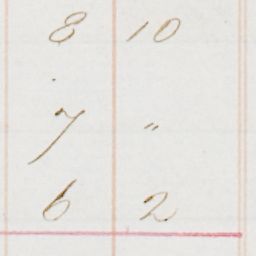 8 10
7 "
6 2